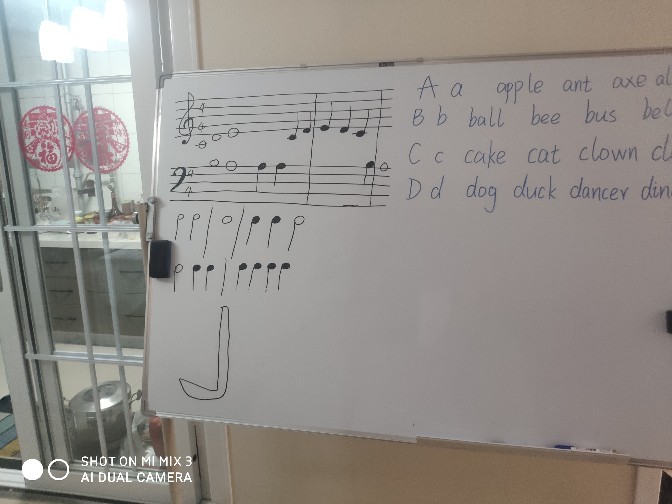 A a apple ant axe
B b ball bee bus
C c cake cat clown
D d dog duck dancer
SHOT ON MI MIX 3
AI DUAL CAMERA